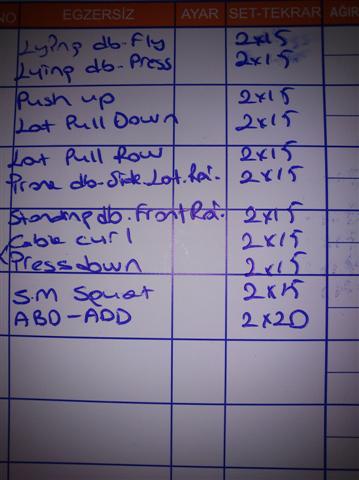 NO EGZERSİZ AYAR SET-TEKRAR AĞIR
Lying db-Fly 2x15
Lying db-Press 2x15
Push up 2x15
Lat Pull Down 2x15
Lat Pull Row 2x15
Prone db-Side.Lat.Rai. 2x15
Standing db.Front Rai. 2x15
Cable curl 2x15
Pressdown 2x15
S.M Squat 2x15
ABD-ADD 2x20